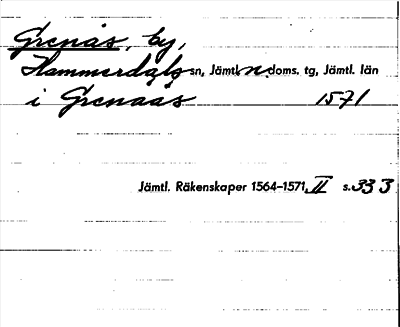 Grenås, by,
Hammerdals sn, Jämtl. n. doms. tg, Jämtl. län
i Grenaas 1571
Jämtl. Räkenskaper 1564–1571, II s. 333